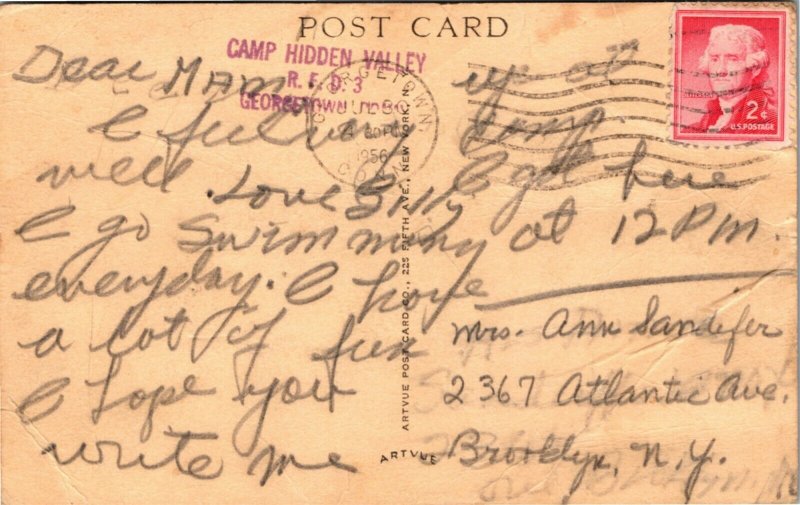 POST CARD
CAMP HIDDEN VALLEY
R.F.D. 3
GEORGETOWN
GEORGETOWN,
1956
CONN
2¢
U.S. POSTAGE
Dear MAM
I feel
well. Love Billy
I go swimming
everyday. I have
a lot of fun
I hope you
write me
up at
camp.
I got here
at 12 P.M.
ARTVUE POST CARD CO., 225 FIFTH AVE., NEW YORK
ARTVUE
Mrs. Ann Sandifer
2367 Atlantic Ave.
Brooklyn, N.Y.